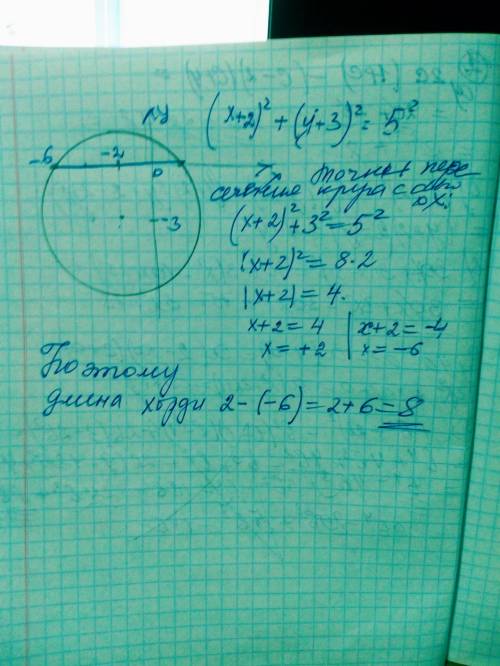 y
(x+2)² + (y+3)² = 5²
-6
-2
0
-3
точнат пере
сечение круга с
ох:
(x+2)² + 3² = 5²
(x+2)² = 8·2
|x+2| = 4.
x+2 = 4 | x+2 = -4
x = +2 | x = -6
Поэтому
длина хорди 2-(-6) = 2+6 = 8